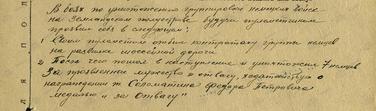 В боях по уничтожению группировки немецких войск
на Земландском полуострове будучи пулеметчиком
проявил себя в следующем:
1 Своим пулеметом отбил контратаку группы немцев
на развилке шоссейной дороги
2 После чего пошел в наступление и уничтожил 7 немцев
За проявленные мужество и отвагу, ходатайствую о
награждении т. Федора Петровича
Медалью "За Отвагу"